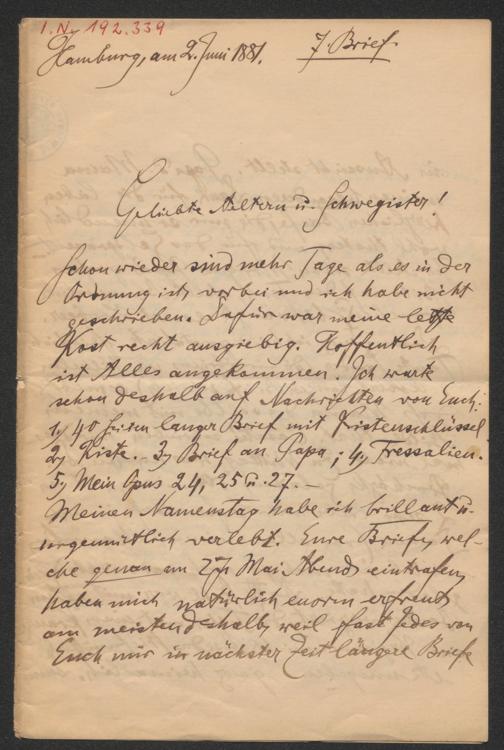 I.N. 192.339
Hamburg, am 2. Juni 1881. 7. Brief.
Geliebte Aeltern u. Schwegister!
Schon wieder sind mehr Tage als es in der
Ordnung ist, vorbei und ich habe nicht
geschrieben. Dafür war meine letzte
Post recht ausgiebig. Hoffentlich
ist Alles angekommen. Ich warte
schon deshalb auf Nachrichten von Euch:
1, 40 Seiten langer Brief mit Kistenschlüssel
2, Kiste. – 3, Brief an Papa; 4, Fressalien.
5, Mein Opus 24, 25 u. 27. –
Meinen Namenstag habe ich brillant u.
urgemütlich verlebt. Eure Briefe, wel-
che genau am 27. Mai Abends eintrafen,
haben mich natürlich enorm erfreut
am meisten deshalb, weil fast Jedes von
Euch mir in nächster Zeit längere Briefe